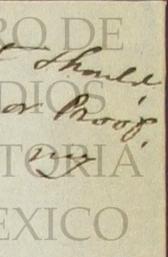 RO DE
should
DIOS
or Proof,
TORIA
ny
EXICO